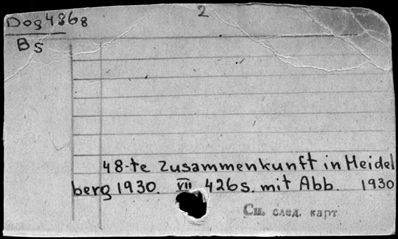 2
Dog4868
Bs
48-te Zusammenkunft in Heidel
berg 1930. VII 426s. mit Abb. 1930
См. след. карт